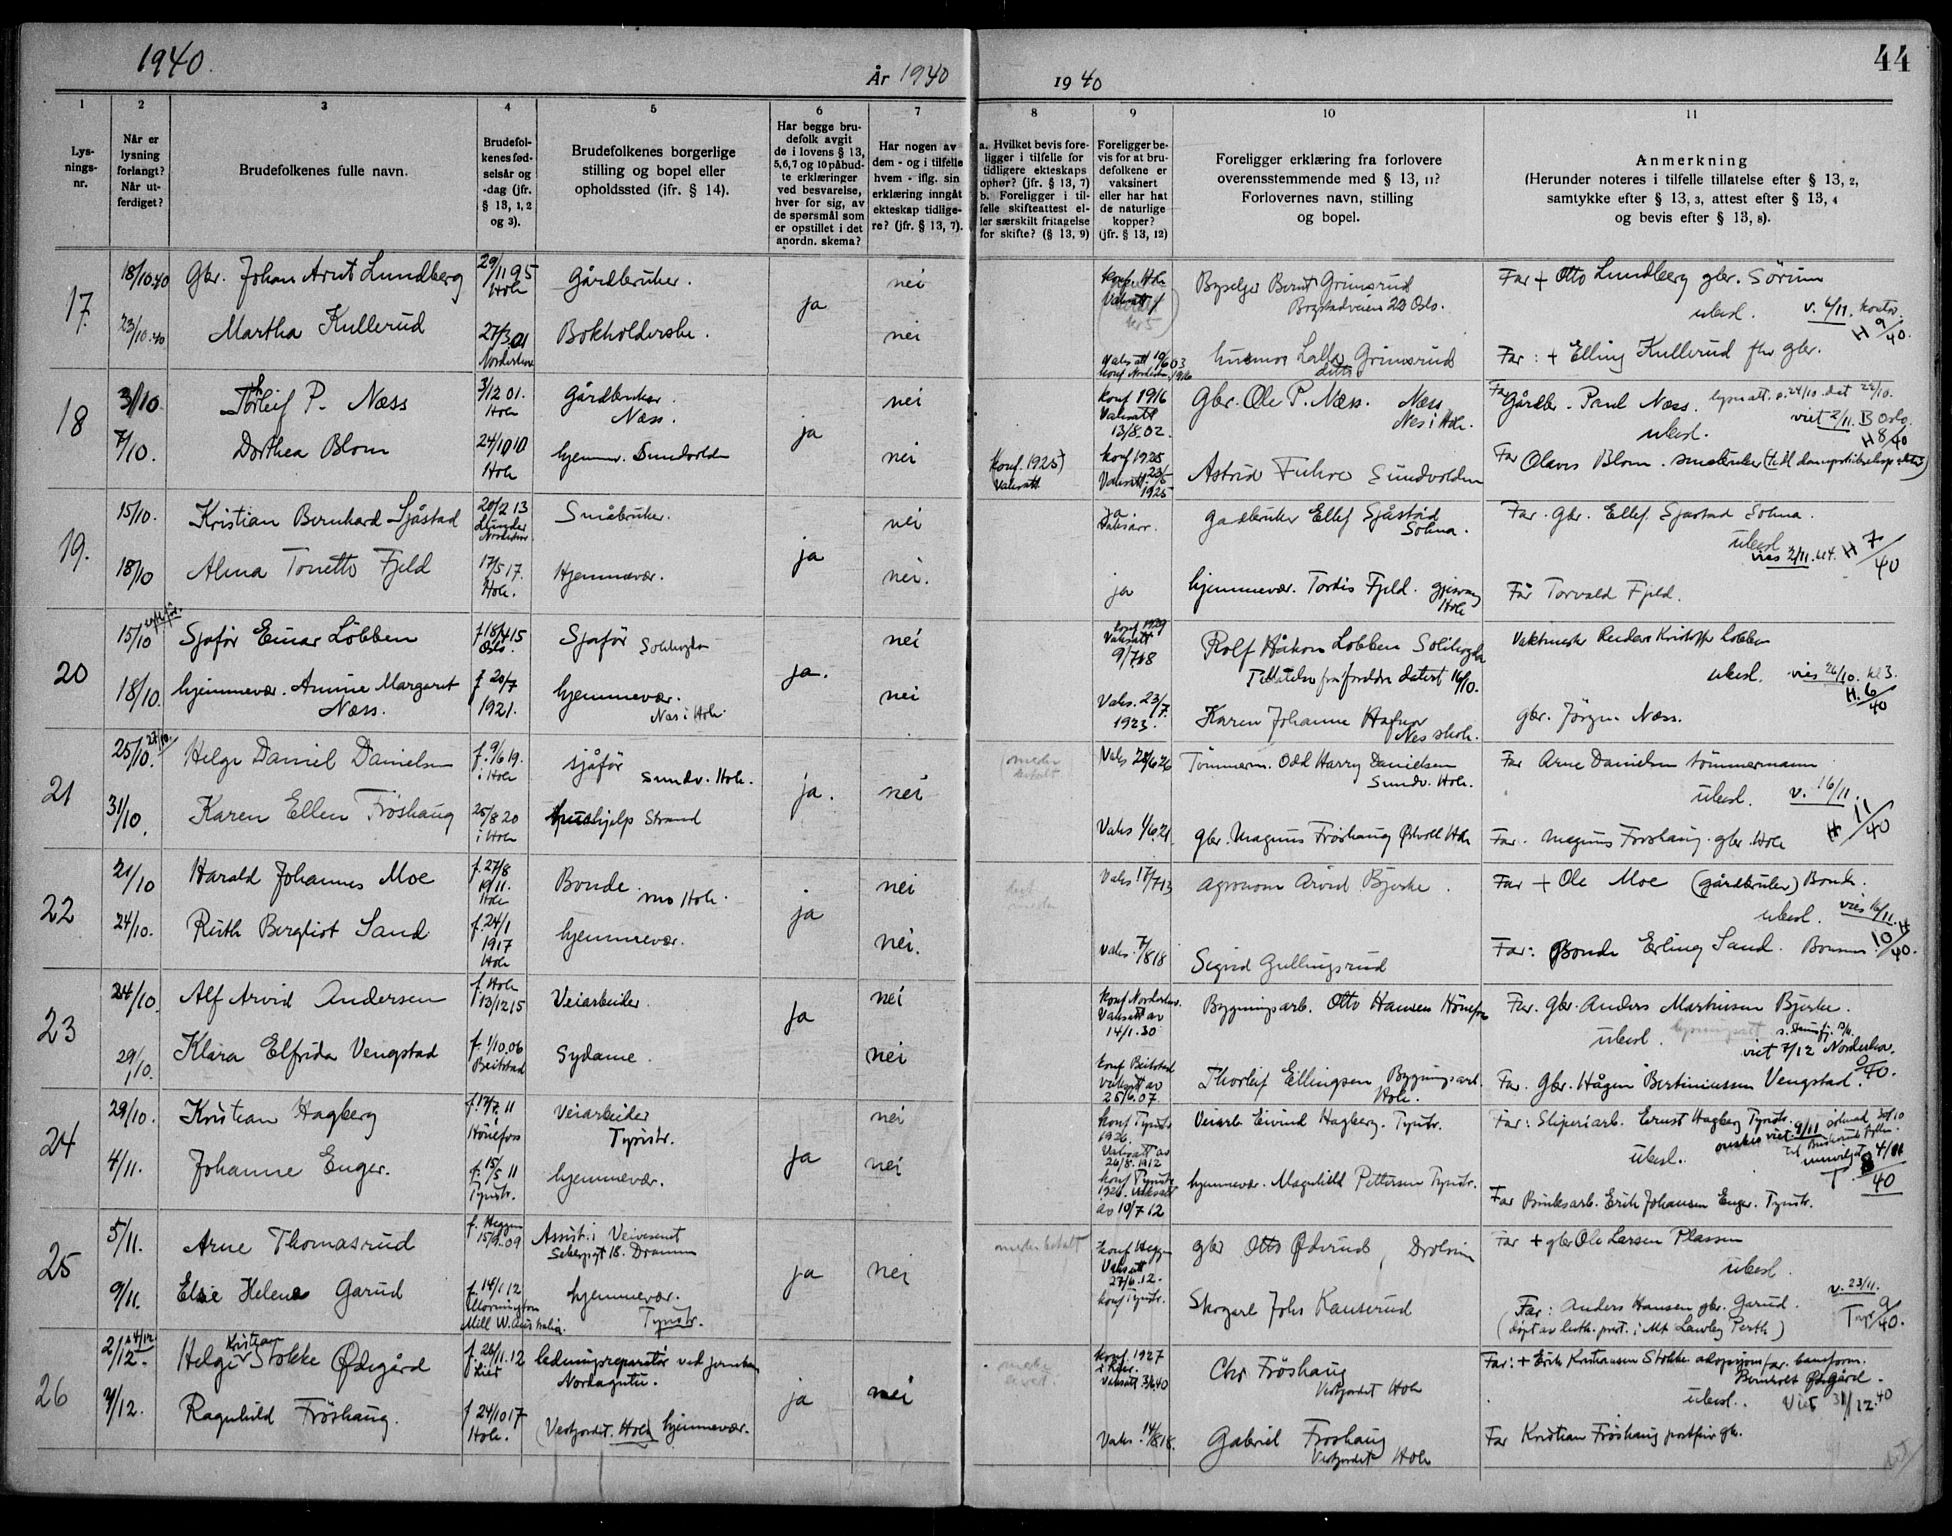 1940.
År 1940
1940
44
1 2 3 4 5 6 7 8 9 10 11
Lys-
nings-
nr.
Når er
lysning
forlangt?
Når ut-
ferdiget?
Brudefolkenes fulle navn.
Brudefol-
kenes fød-
selsår og
-dag (jfr.
§ 13, 1, 2
og 3).
Brudefolkenes borgerlige
stilling og bopel eller
opholdssted (ifr. § 14).
Har begge bru-
defolk avgit
de i lovens § 13,
5,6,7 og 10 påbud-
te erklæringer
ved besvarelse,
hver for sig, av
de spørsmål som
er opstillet i det
anordn. skema?
Har nogen av
dem - og i tilfelle
hvem - iflg. sin
erklæring inngåt
ekteskap tidlige-
re? (jfr. § 13, 7).
a. Hvilket bevis fore-
ligger i tilfelle for
tidligere ekteskaps
ophør? (jfr. § 13, 7)
b. Foreligger i til-
felle skifteattest el-
ler særskilt fritagelse
for skifte? (§ 13, 9)
Foreligger be-
vis for at bru-
defolkene er
vaksinert
eller har hat
de naturlige
kopper?
(jfr. § 13, 12)
Foreligger erklæring fra forlovere
overensstemmende med § 13, 11?
Forlovernes navn, stilling
og bopel.
Anmerkning
(Herunder noteres i tilfelle tillatelse efter § 13, 2,
samtykke efter § 13, 3, attest efter § 13, 4
og bevis efter § 13, 8).
17.
18/10.40 Gbr. Johan Arnt Lundberg 29/11 95 Hole Gårdbruker. ja nei
Bernt Grimsrud
Far + Otto Lundberg gbr. Sørum
ubesl. v. 6/11. H 9/40.
23/10.40 Martha Kullerud 27/3.01 Norderhov Bokholderske. nei
Grimsrud ditto
Far: + Elling Kullerud fhv gbr.
18
3/10. Thorleif P. Næss 3/12 01. Hole Gårdbruker. Næss. ja nei
konf 1916 Vaksatt 13/8.02. Gbr. Ole P. Næss. Næss Nes i Hole.
Far Gårdbr. Paul Næss. viet 2/11. B Oslo.
ubesl. H 8/40
7/10. Dorthea Blom 24/10 10 Hole hjemmv. Sundvolden nei
(Konf. 1925) Vaksatt konf 1925 Vaksatt. 23/6 1925 Astrid Fuhre Sundvolden
Far Olaves Blom.
19.
15/10. Kristian Bernhard Sjåstad 20/2 13 Lunder Norderhov Småbruker. ja nei
ja. Vaksatt. Gardbruker Ellef Sjåstad Sokna.
Far. Gbr. Ellef Sjåstad Sokna.
ubesl. vies 2/11. kl 4. H 7/40
18/10 Alma Tonette Fjeld 17/5 17. Hole. Hjemmevær. nei.
ja hjemmevær. Tordis Fjeld. Hole
Far Torvald Fjeld.
20
15/10 Sjåfør Einar Löbben f 18/4 15 Oslo. Sjåfør Sollihøgda ja. nei
konf 1929 Vaksatt 9/7 18 Rolf Håkon Lobben Sollihøgda
Tillatelse fra foreldre datert 16/10.
Vaktmester Anders Kristoffer Lobben
ubesl. vies 26/10. kl 3. H. 6/40
18/10. hjemmevær. Annie Margaret Næss. f 20/7 1921. hjemmevær. Nes i Hole. nei
Vaks. 23/7. 1923. Karen Johanne Hafnor Nes i Hole.
gbr. Jørgen Næss.
21
25/10. Helge Daniel Danielsen f. 9/6 19. i Hole sjåfør Sundv. Hole. ja. nei
Vaks 28/6 26 Tömmerm. Odd Harry Danielsen Sundv. Hole.
Far Arne Danielsen tömmermann
ubesl. v. 16/11. H 11/40
31/10. Karen Ellen Fröshaug 25/8 20 i Hole hushjelp Strand
Vaks 1/6 21. gbr. Magnus Fröshaug Hole
Far. Magnus Froshaug. gbr. Hole
22
21/10 Harald Johannes Moe f. 27/8 1911. Hole Bonde. Mo Hole. ja nei
Vaks 17/7 13 agronom Arvid Bjerke.
Far + Ole Moe (gårdbruker) Bonde.
ubesl. vies 16/11. H 10/40.
24/10. Ruth Bergliot Sand f. 24/1 1917 Hole hjemmevær. nei.
vaks. 7/8 18 Sigrid Gullingsrud
Far: Bonde Erling Sand.
23
24/10. Alf Arvid Andersen f. Hole 13/12 15 Veiarbeider. ja nei
konf Norderhov. Vaksatt av 14/1.30 Bygningsarb. Otto Hansen Hönefoss
Far. Gbr. Anders Martinsen Bjerke.
ubesl. viet 7/12 Norderhov.
29/10. Klara Elfrida Vengstad f. 1/10.06 Beitstad Sydame. nei
konf Beitstad vaksatt av 25/6.07 Thorleif Ellingsen Bygningsarb. Hole.
Far. Gbr. Hågen Bertiniussen Vengstad.
24
29/10. Kristian Hagberg f. 17/7. 11 Hönefoss Veiarbeider Tyristr. ja nei
konf Tyristr 1926. Vaksatt av 26/8.1912 Veiarb Eivind Hagberg. Tyristr.
Far: Sliperiarb. Ernst Hagberg Tyristr.
ubesl. T. 8/40
4/11. Johanne Enger. f. 15/5 11 Tyristr. hjemmevær. nei
konf Tyristr 1926. vaksatt av 10/7 12 hjemmevær. Magnhild Pettersen Tyristr.
Far Bruksarb. Erik Johansen Enger. Tyristr.
25
5/11. Arne Thomasrud f. Heggen 15/9.09 Assist. i Veivesenet Drammen ja nei
meder betalt konf Heggen Vaksatt 27/6.12. gbr Otto Øderud,
Far + gbr Ole Larsen Plassen
ubesl. v. 23/11. T 9/40.
9/11. Else Helene Garud f. 14/1 12 Mornington Mill W. Australia. hjemmevær. Tyristr.
konf Tyristr. Johs Kanserud
Far: Anders Hansen gbr. Garud.
(døpt av luth. prest. i Mt Lawley Perth)
26
2/12. Helge Kristian Stokke Ødegård f. 26/11.12 i Lier ledningsreparatør ved jernbanen Nordagutu. ja nei
konf. 1927 i Lier. Chr Fröshaug Vestfjordet Hole
Far: + Erik Kristiansen Stokke adopsjonsfar. baneform. Bernholt Ødegård.
ubesl. Viet 31/12.40
4/12. Ragnhild Fröshaug. f 24/10 17 Hole. (Vestfjordet. Hole) hjemmevær.
Vaks. 14/8 18. Gabriel Froshaug Vestfjordet Hole
Far Kristian Fröshaug